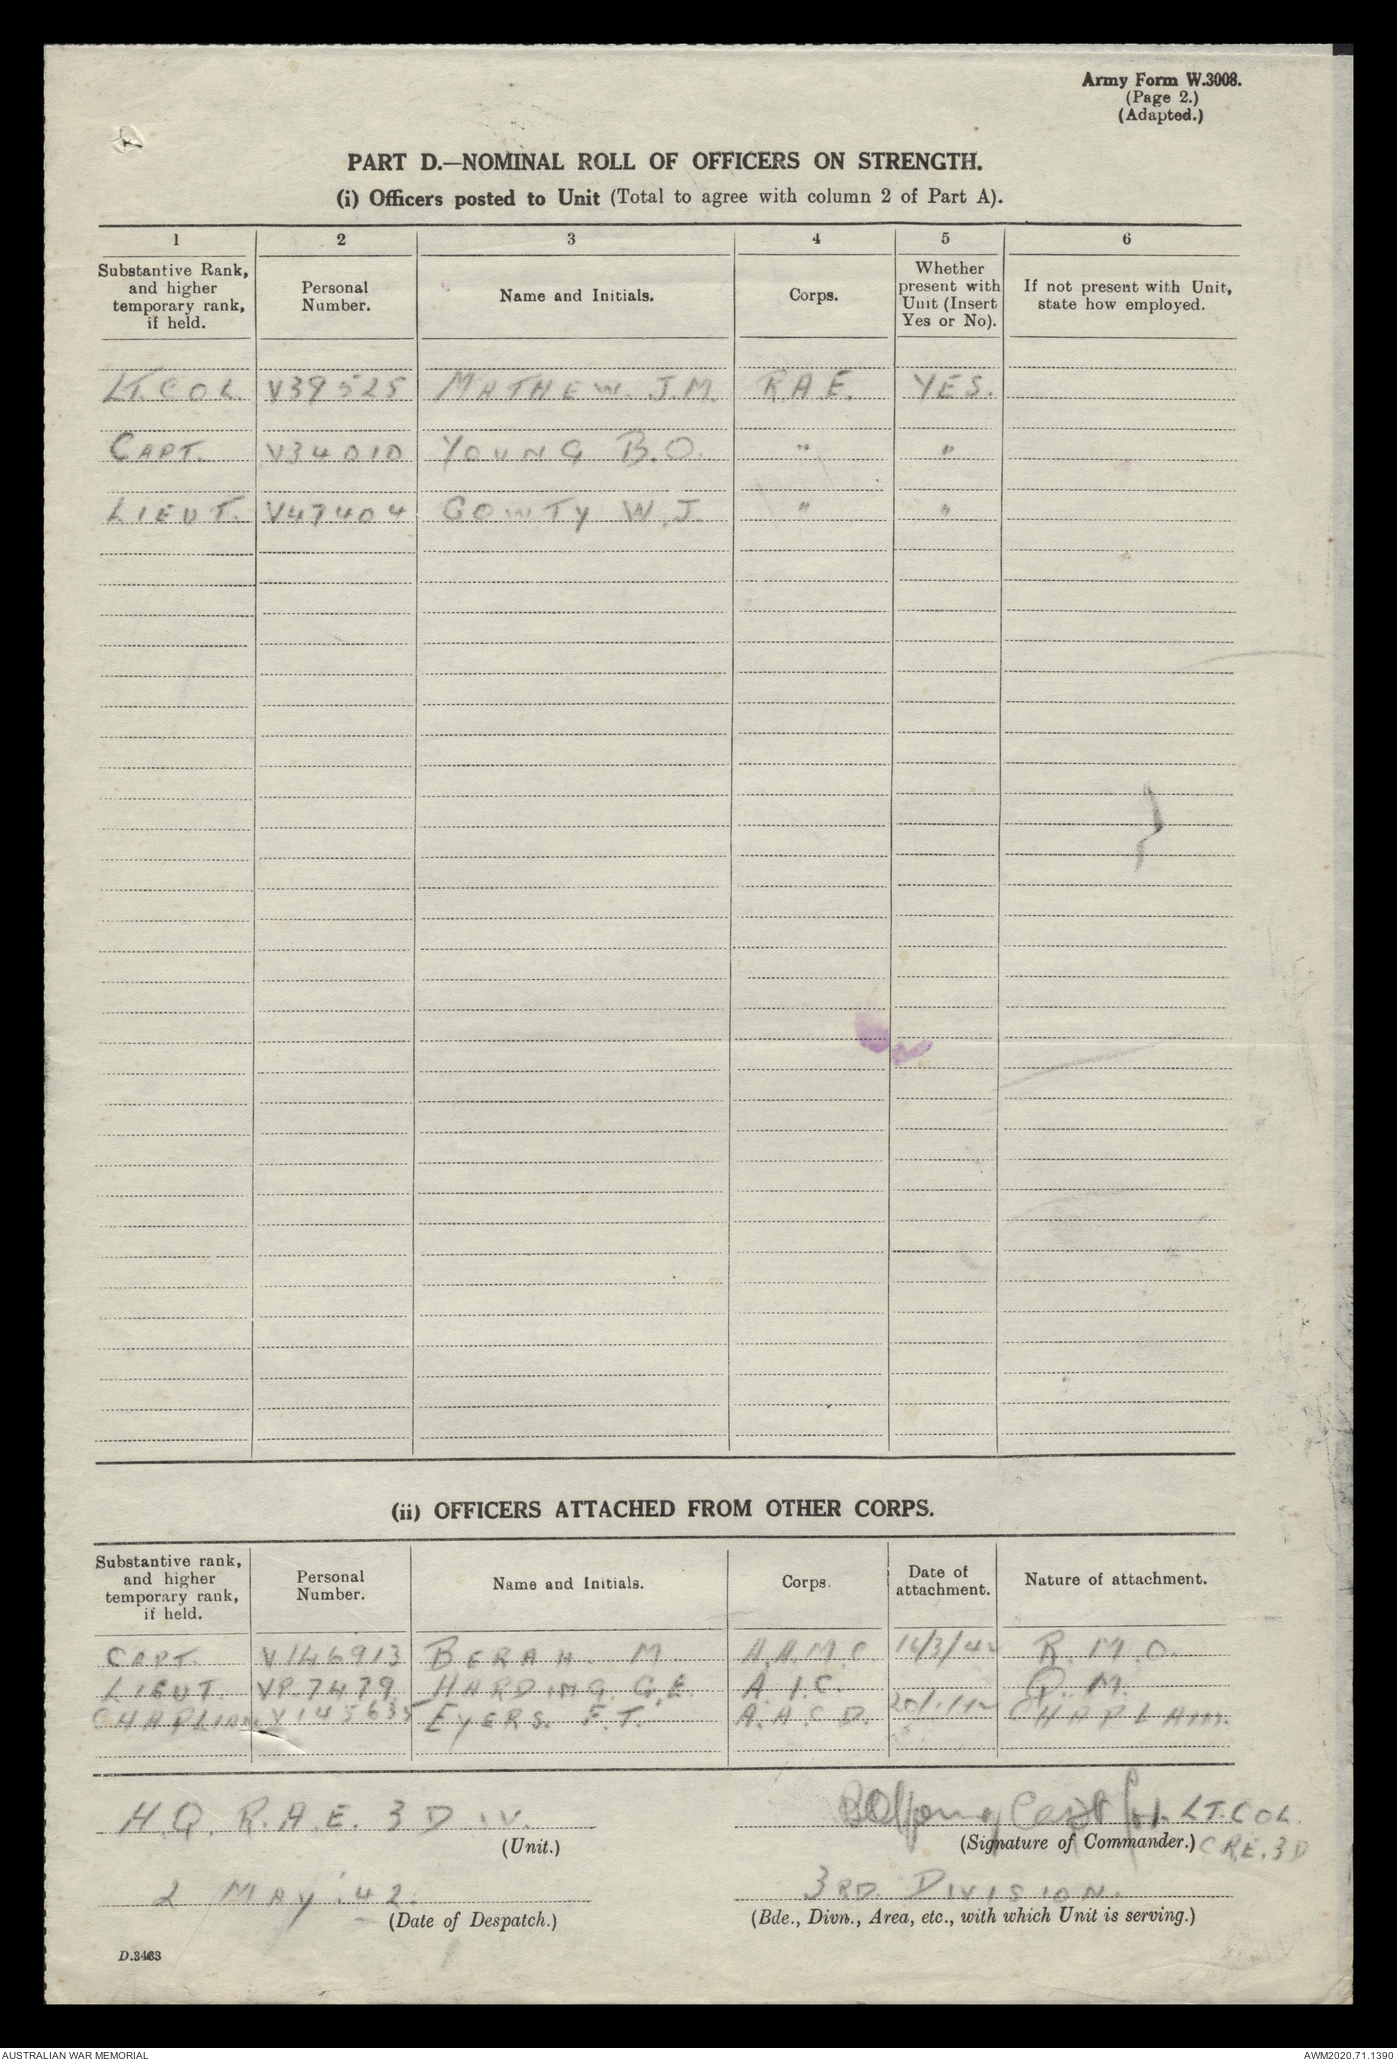 Army Form W.3008.
(Page 2.)
(Adapted.)
PART D.—NOMINAL ROLL OF OFFICERS ON STRENGTH.
(i) Officers posted to Unit (Total to agree with column 2 of Part A).
1 2 3 4 5 6
Substantive Rank, and higher temporary rank, if held. Personal Number. Name and Initials. Corps. Whether present with Unit (Insert Yes or No). If not present with Unit, state how employed.
LT. COL. V39525 MATHEW. J.M. R.A.E. YES.
CAPT. V34010 YOUNG B.O. " "
LIEUT. V47404 GOWTY W.J. " "
(ii) OFFICERS ATTACHED FROM OTHER CORPS.
Substantive rank, and higher temporary rank, if held. Personal Number. Name and Initials. Corps. Date of attachment. Nature of attachment.
CAPT. V146913 BERAH. M. A.A.M.C. /3/42 R.M.O.
LIEUT. VP7479 HARDING. G.E. A.I.C. Q.M.
CHAPLIAN. V145635 EYERS. F.T. A.A.C.D. CHAPLAIN.
H.Q. R.A.E. 3 DIV. BOYoung Capt for LT. COL.
(Unit.) (Signature of Commander.) CRE. 3D
2 MAY '42. 3RD. DIVISION.
(Date of Despatch.) (Bde., Divn., Area, etc., with which Unit is serving.)
D.3463
AUSTRALIAN WAR MEMORIAL AWM2020.71.1390